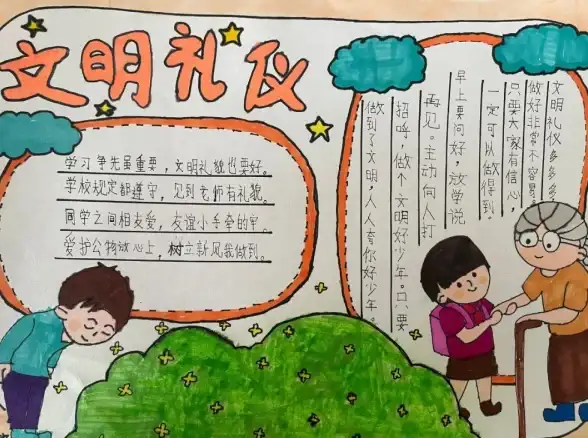 文明礼仪
学习争先虽重要，文明礼貌也要好。
学校规定都遵守，见到老师有礼貌。
同学之间相友爱，友谊小手牵的牢。
爱护公物放心上，树立新风我做到。
文明礼仪多多多，
做好非常不容易。
只要大家有信心，
一定可以做得到。
早上要问好，放学说
再见。主动向人打
招呼，做个文明好少年。只要
做到了文明，人人夸你好少年。